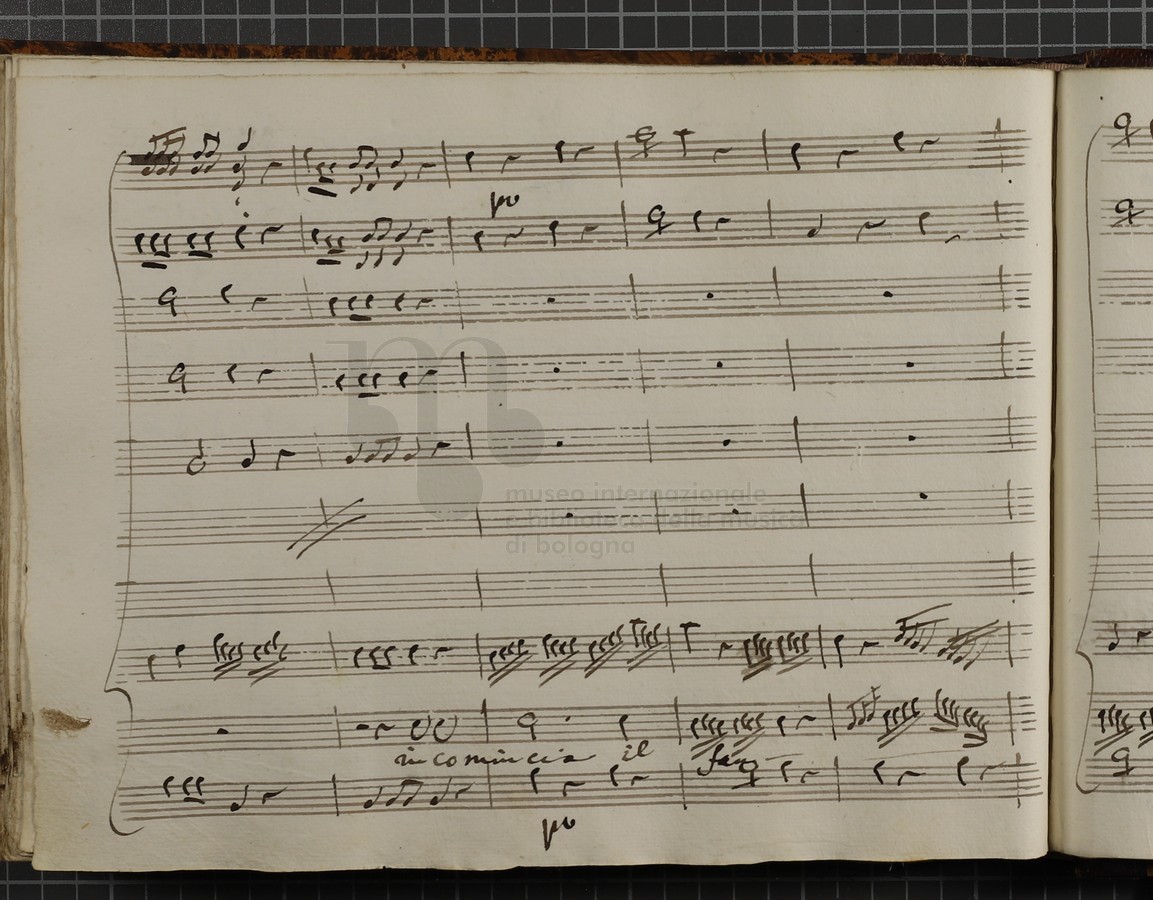 po
museo internazionale
e biblioteca della musica
di bologna
incomincia il fan
po